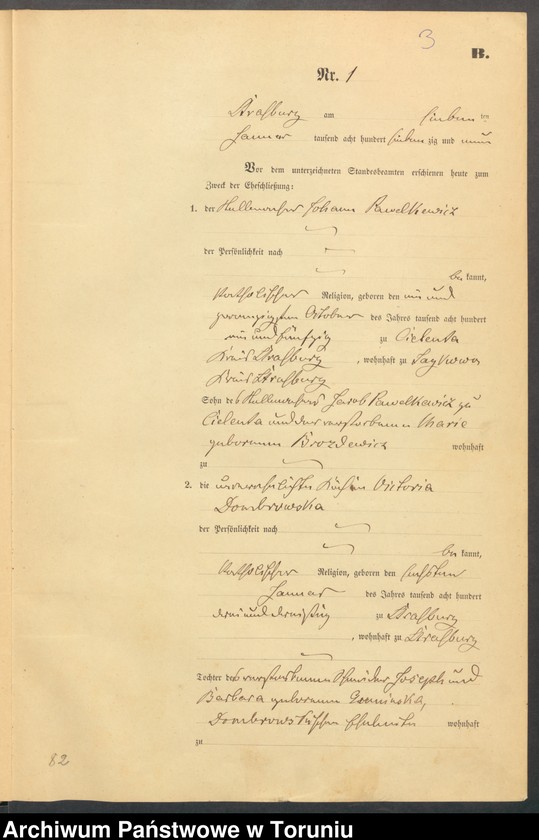 3
B.
Nr. 1
Straßburg am sieben ten
Januar tausend acht hundert siebenzig und neun
Vor dem unterzeichneten Standesbeamten erschienen heute zum
Zweck der Eheschließung:
1. der Johann Pawelkiewicz
der Persönlichkeit nach
be kannt,
katholischer Religion, geboren den ein und
zwanzigsten October des Jahres tausend acht hundert
und fünfzig zu Cielenta
Kreis Straßburg , wohnhaft zu
Kreis Straßburg
Sohn des Jacob Pawelkiewicz zu
Cielenta und der verstorbenen Marie
geborenen wohnhaft
zu
2. die unverehelichte Köchin Victoria
Dombrowska
der Persönlichkeit nach
be kannt,
katholischer Religion, geboren den sechsten
Januar des Jahres tausend acht hundert
drei und dreißig zu Straßburg
, wohnhaft zu Straßburg
Tochter der verstorbenen Schneider Joseph und
Barbara geborenen
Dombrowskischen Eheleute wohnhaft
zu
82
Archiwum Państwowe w Toruniu